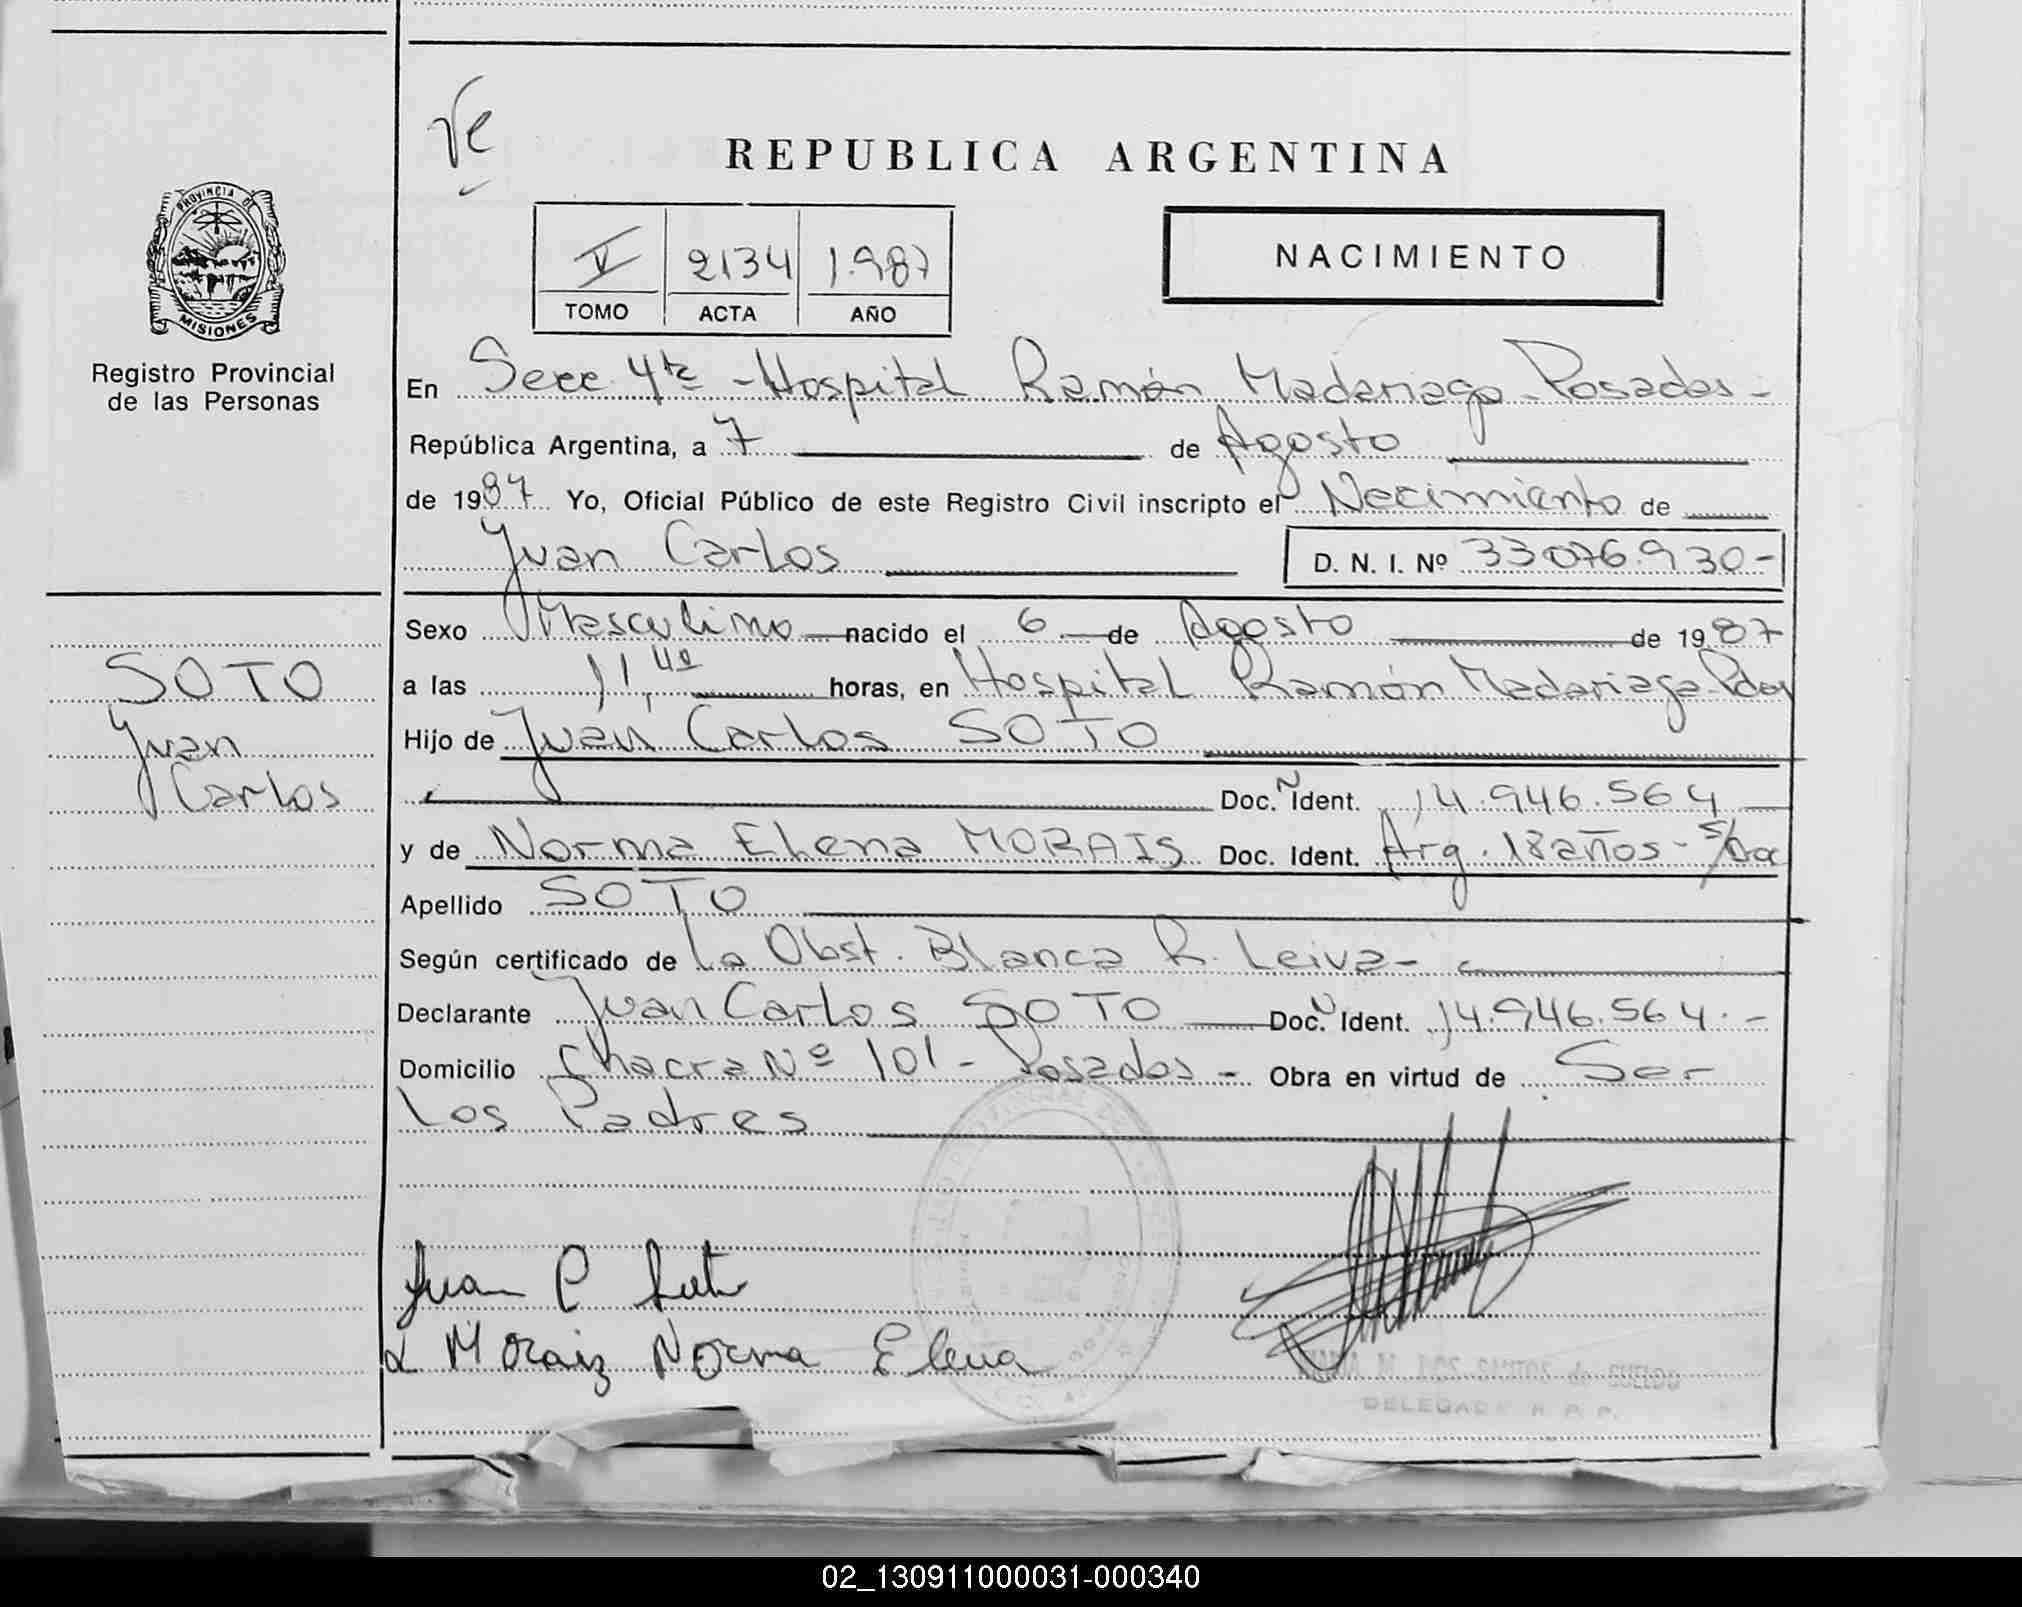 Ve
REPUBLICA ARGENTINA
V 2134 1.987
TOMO ACTA AÑO
NACIMIENTO
PROVINCIA DE
MISIONES
Registro Provincial
de las Personas
En Secc 4ta - Hospital Ramón Madariaga - Posadas -
República Argentina, a 7 de Agosto
de 1987. Yo, Oficial Público de este Registro Civil inscripto el Nacimiento de
Juan Carlos D. N. I. Nº 33076.930-
Sexo Masculino nacido el 6 de Agosto de 1987
SOTO
Juan
Carlos
a las 11,40 horas, en Hospital Ramón Madariaga-Pdas
Hijo de Juan Carlos SOTO
Doc. N Ident. 14.946.564
y de Norma Elena MORAIS Doc. Ident. Arg. 18 años - s/Doc
Apellido SOTO
Según certificado de La Obst. Blanca R. Leiva-
Declarante Juan Carlos SOTO Doc. N Ident. 14.946.564.-
Domicilio Chacra Nº 101 - Posadas - Obra en virtud de Ser
Los Padres
Juan C Soto
Moraiz Norma Elena
DELEGADA R. P. P.
02_130911000031-000340